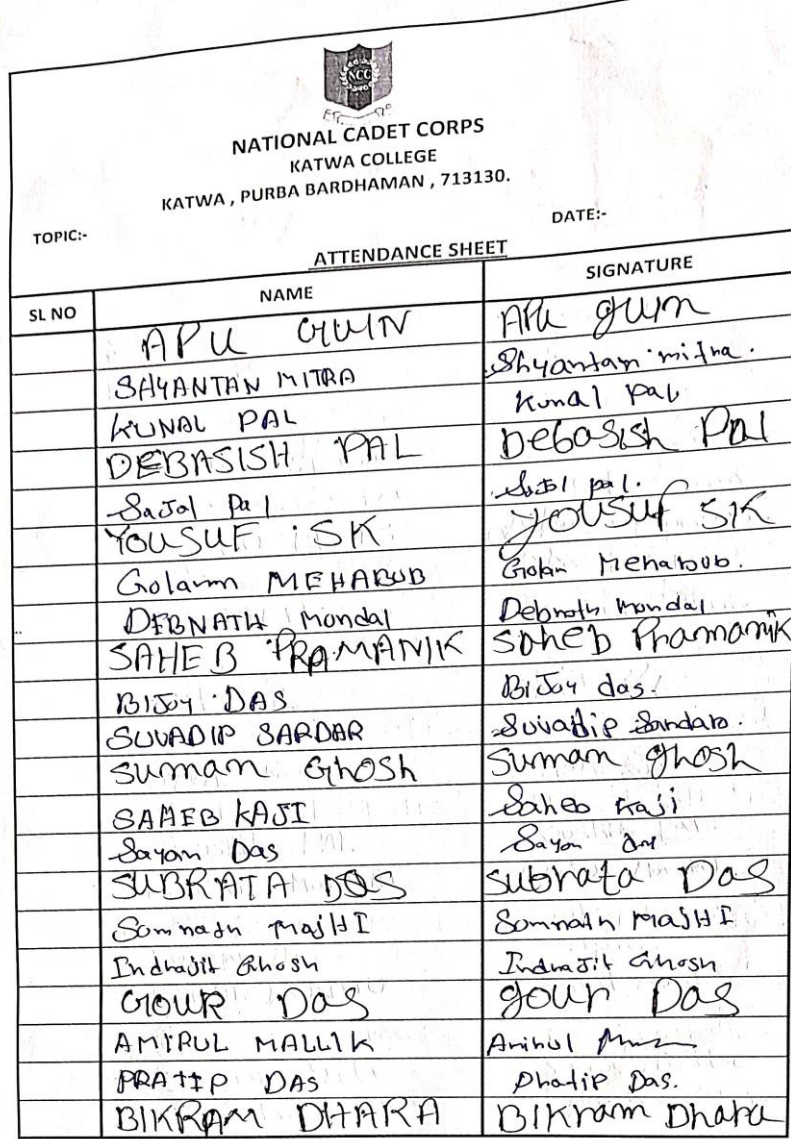 NCC
NATIONAL CADET CORPS
KATWA COLLEGE
KATWA , PURBA BARDHAMAN , 713130.
TOPIC:- DATE:-
ATTENDANCE SHEET
SL NO NAME SIGNATURE
APU GUIN APU guin
SAYANTAN MITRA Shyantan mitra.
KUNAL PAL Kunal Pal
DEBASISH PAL Debasish Pal
Sajol Pal Sajol pal.
YOUSUF SK YOUSUF SK
Golamm MEHABUB Golam Mehaboob.
DEBNATH Mondal Debnath Mondal
SAHEB PRAMANIK Saheb Pramanik
BIJOY DAS BiJoy das.
SUVADIP SARDAR Suvadip Sardar.
Suman Ghosh Suman ghosh
SAHEB KAJI Saheb Kaji
Sayan Das Sayan
SUBRATA DAS Subrata Das
Somnath MajHI Somnath MajHI
IndraJit Ghosh IndraJit Ghosh
GOUR DAS gour Das
AMIRUL MALLIK Amirul
PRATIP DAS Pratip Das.
BIKRAM DHARA BIKram Dhara